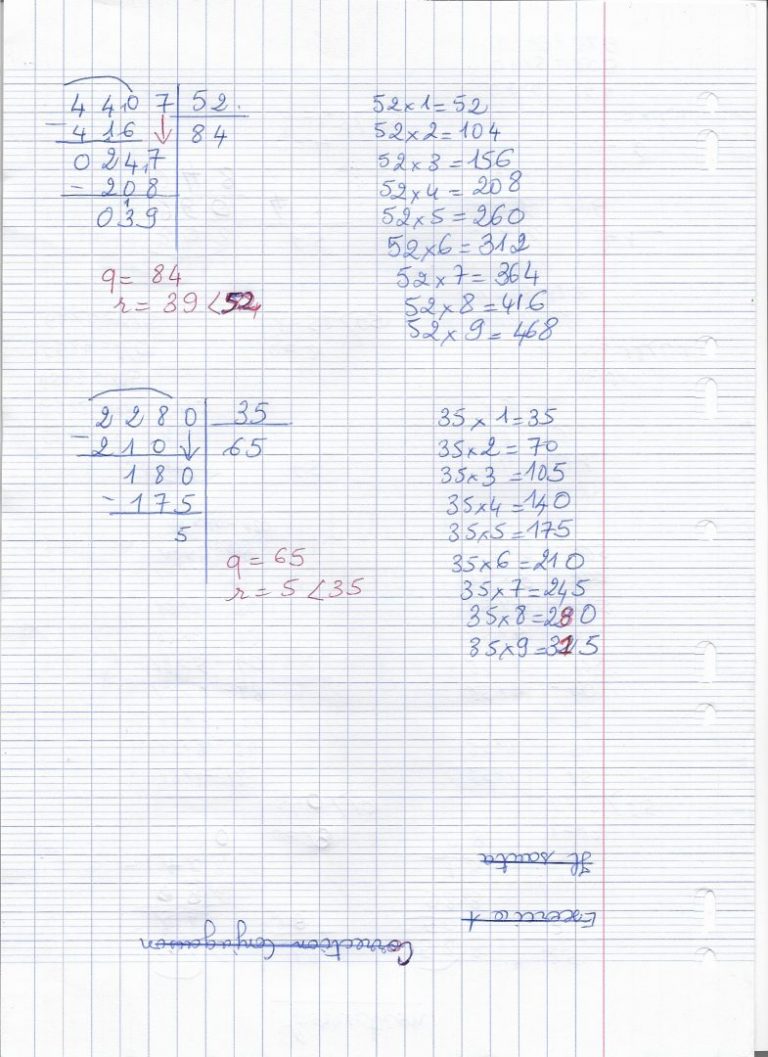 4407 52
- 416 84
0247
- 208
039
q = 84
r = 39 < 52
52 x 1 = 52
52 x 2 = 104
52 x 3 = 156
52 x 4 = 208
52 x 5 = 260
52 x 6 = 312
52 x 7 = 364
52 x 8 = 416
52 x 9 = 468
2280 35
- 210 65
180
- 175
5
q = 65
r = 5 < 35
35 x 1 = 35
35 x 2 = 70
35 x 3 = 105
35 x 4 = 140
35 x 5 = 175
35 x 6 = 210
35 x 7 = 245
35 x 8 = 280
35 x 9 = 315
Correction Conjugaison
Exercice 1
Il sauta